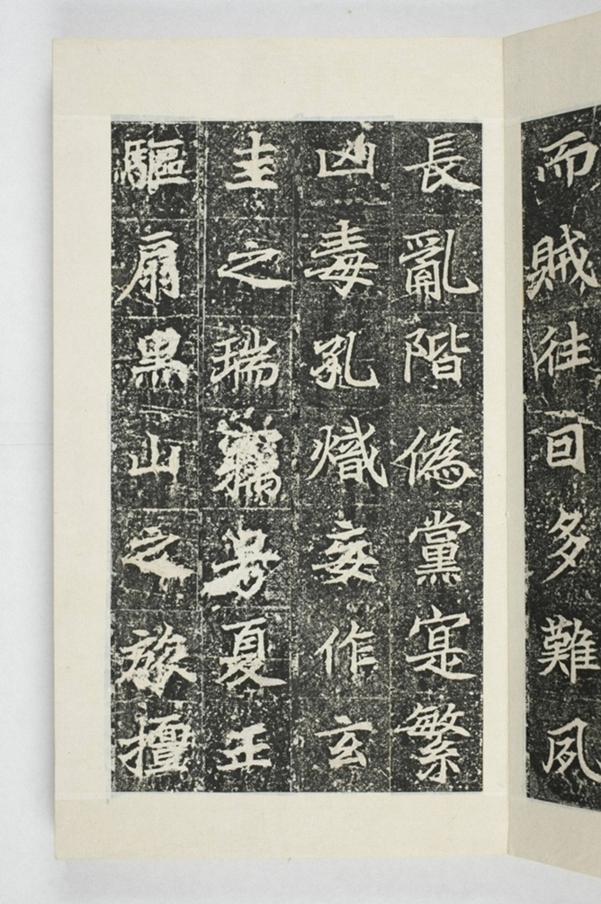 而賊往囙多難夙
長亂階偽黨寔繁
凶毒孔熾妄作玄
圭之瑞竊号夏王
驅扇黑山之旅擅